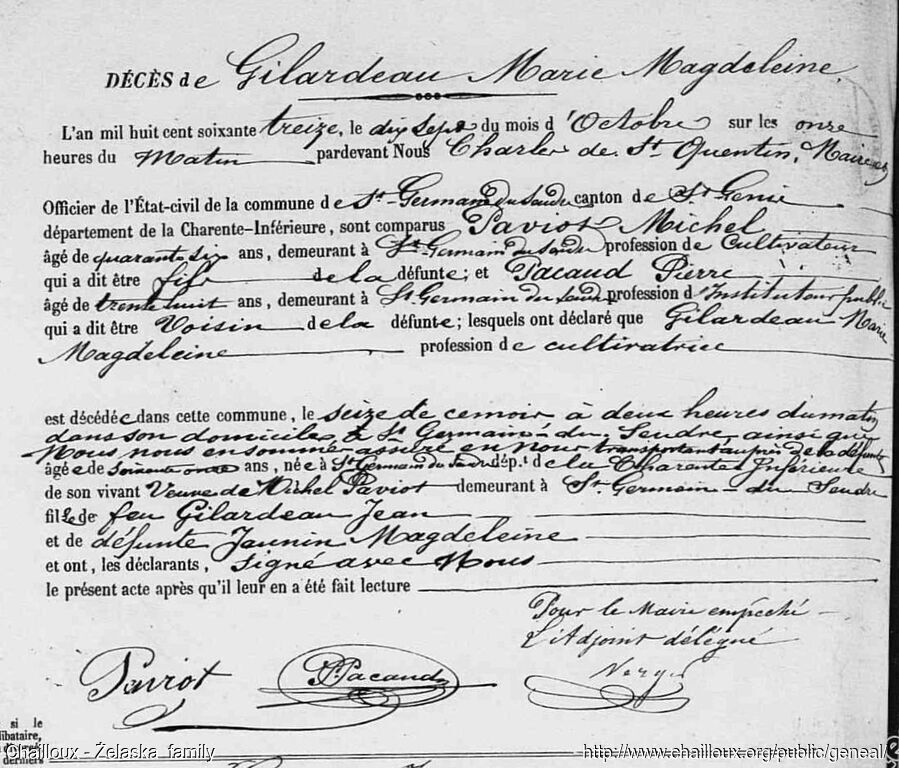 DÉCÈS de Gilardeau Marie Magdeleine.
L'an mil huit cent soixante treize, le dix sept du mois d'Octobre sur les onze
heures du Matin pardevant Nous Charles de St Quentin, Maire et
Officier de l'État-civil de la commune de St-Germain du Seudre canton de St. Genis
département de la Charente-Inférieure, sont comparus Paviot Michel
âgé de quarante six ans, demeurant à St Germain du Seudre profession de Cultivateur
qui a dit être fils de la défunte; et Pacaud Pierre
âgé de trente huit ans, demeurant à St Germain du Seudre profession d'Instituteur public
qui a dit être Voisin de la défunte; lesquels ont déclaré que Gilardeau Marie
Magdeleine profession de cultivatrice
est décédée dans cette commune, le seize de ce mois à deux heures du matin
dans son domicile à St Germain-du Seudre, ainsi que
Nous nous en sommes assuré en nous transportant auprès de la défunte
âgée de soixante onze ans, née à St Germain du Seudre dép.t de la Charente Inférieure
de son vivant Veuve de Michel Paviot demeurant à St Germain-du Seudre
fille de feu Gilardeau Jean
et de défunte Jaunin Magdeleine
et ont, les déclarants, signé avec Nous
le présent acte après qu'il leur en a été fait lecture
Pour le Maire empêché
L'Adjoint délégué
Paviot Pre Pacaud
si le
libataire,
derniers
Chailloux - Żelaska family
http://www.chailloux.org/public/geneal/